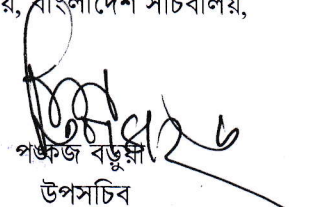 য়, বাংলাদেশ সচিবালয়,
পঙ্কজ বড়ুয়া
উপসচিব